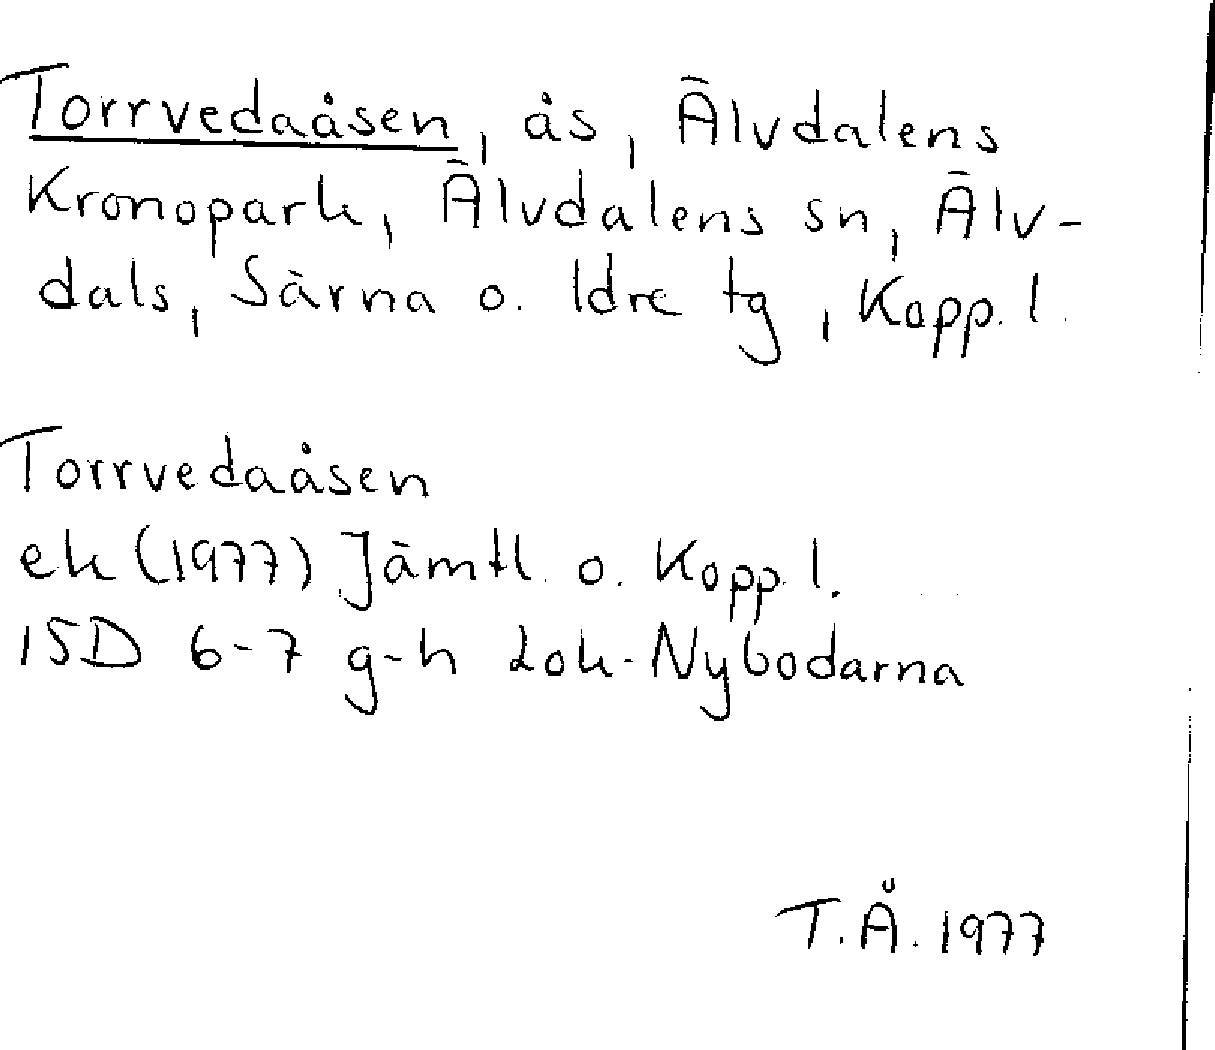 Torrvedaåsen, ås, Älvdalens
Kronopark, Älvdalens sn, Älv-
dals, Särna o. Idre tg, Kopp. l.
Torrvedaåsen
ek (1977) Jämtl. o. Kopp. l.
15D 6-7 g-h Lok-Nybodarna
T.Å. 1977